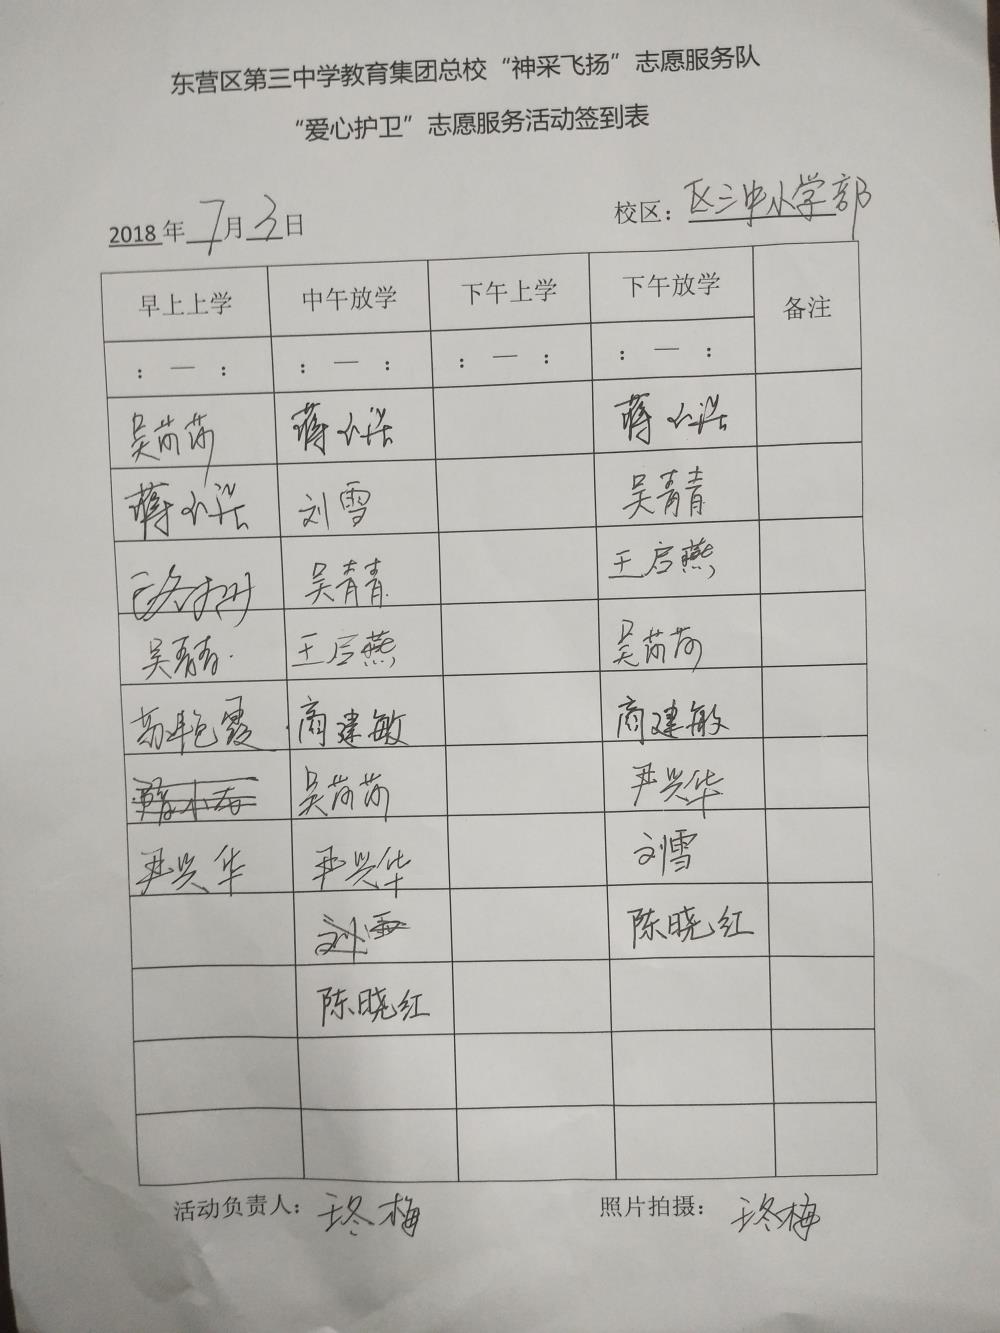 东营区第三中学教育集团总校“神采飞扬”志愿服务队
“爱心护卫”志愿服务活动签到表
2018年 7月3日 校区：区三中小学部
早上上学 中午放学 下午上学 下午放学 备注
： — ： ： — ： ： — ： ： — ：
吴芮莎 蒋小洪 蒋小洪
蒋小洪 刘雪 吴青青
吴青青 王启燕
吴青青 王启燕 吴芮莎
艳霞 商建敏 商建敏
吴芮莎 尹兴华
尹兴华 尹兴华 刘雪
刘雪 陈晓红
陈晓红
活动负责人：王冬梅 照片拍摄：王冬梅